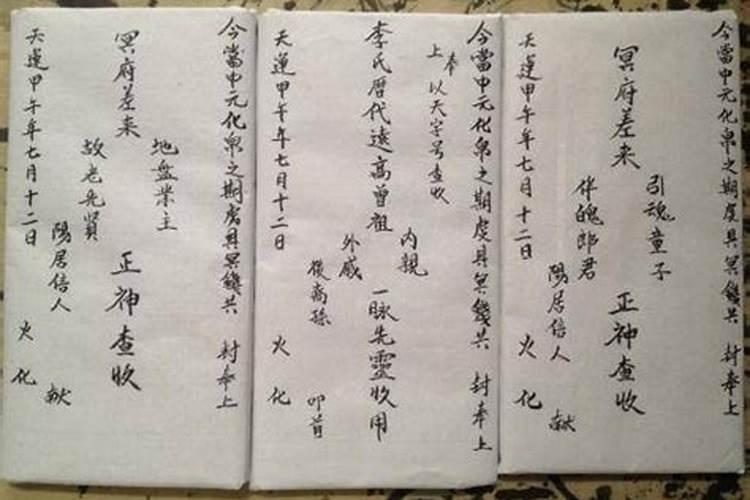 今當中元化帛之期虔具冥錢共 封奉上
引魂童子
冥府差来 正神查收
伴魄郎君
陽居信人 献
天運甲午年七月十二日 火化
今當中元化帛之期虔具冥錢共 封奉上
奉
上 以天字号查收
内親
李氏歴代遠高曾祖 一脉先靈收用
外戚
後裔孫 叩首
天運甲午年七月十二日 火化
今當中元化帛之期虔具冥錢共 封奉上
地盤業主
冥府差来 正神查收
故老先賢
陽居信人 献
天運甲午年七月十二日 火化